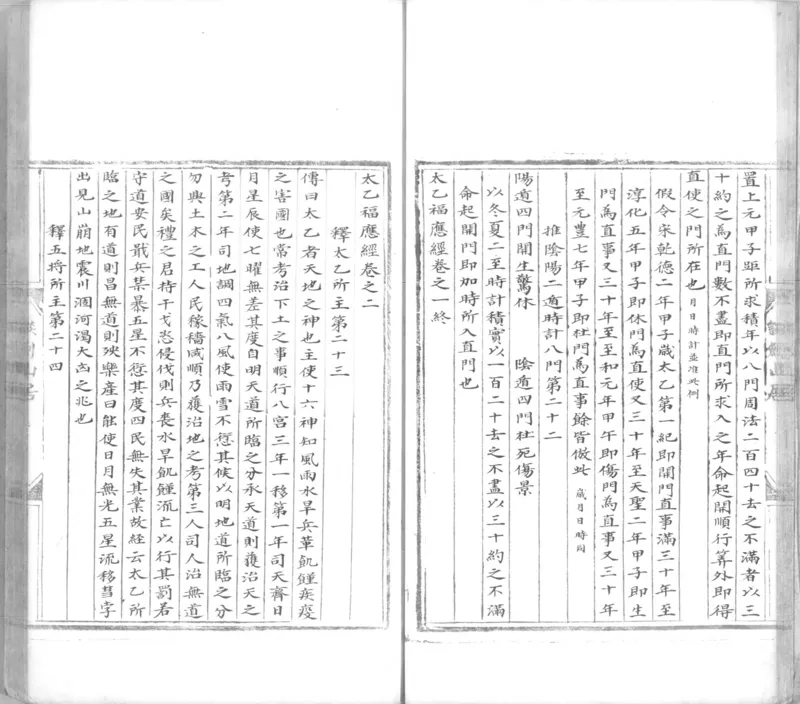 置上元甲子距所求積年以八門周法二百四十去之不滿者以三
十約之為直門數不盡即直門所求入之年命起開順行筭外即得
直使之門所在也月日時計並准此例
假令宋乾德二年甲子歲太乙第一紀即開門直事滿三十年至
淳化五年甲子即休門為直使又三十年至天聖二年甲子即生
門為直事又三十年至至和元年甲午即傷門為直事又三十年
至元豐七年甲子即杜門為直事餘皆倣此歲月日時同
推陰陽二遁時計八門第二十二
陽遁四門開生驚休 陰遁四門杜死傷景
以冬夏二至時計積實以一百二十去之不盡以三十約之不滿
命起開門即加時所入直門也
太乙福應經卷之一終
太乙福應經卷之二
釋太乙所主第二十三
傳曰太乙者天地之神也主使十六神知風雨水旱兵革飢饉疾疫
之害國也常考治下土之事順行八宮三年一移第一年司天齊日
月星辰使七曜無差其度自明天道所臨之分承天道則護治天之
考第二年司地調四氣八風使雨雪不愆其候以明地道所臨之分
勿興土木之工人民稼穡咸順乃護治地之考第三人司人治無道
之國矣禮之君持干戈恣侵伐則兵喪水旱飢饉流亡以行其罰若
守道安民戢兵禁暴五星不愆其度四民無失其業故經云太乙所
臨之地有道則昌無道則殃樂產曰能使日月無光五星流移彗孛
出見山崩地震川涸河濁大凶之兆也
釋五將所主第二十四